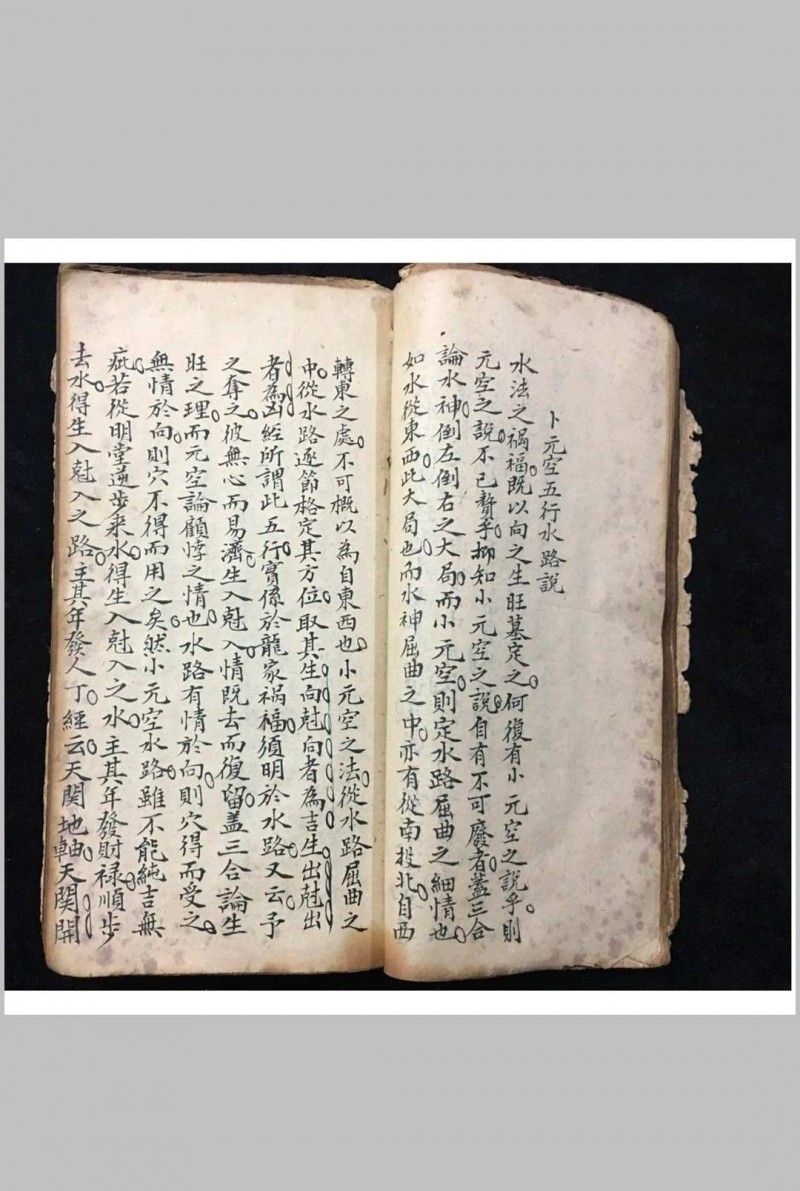 卜元空五行水路説
水法之禍福。既以向之生旺墓定之。何復有小元空之説乎。則
元空之説。不已贅乎。抑知小元空之説。自有不可廢者。蓋三合
論水神。倒左倒右之大局。而小元空。則定水路屈曲之細情也。
如水從東西。此大局也。而水神屈曲之中。亦有從南投北。自西
轉東之處。不可概以為自東西也。小元空之法。從水路屈曲之
中。從水路逐節格定其方位。取其生向尅向者為吉。生出尅出
者為凶。經所謂此五行。實係於龍家禍福。須明於水路。又云予
之奪之。彼無心而易濟。生入尅入。情既去而復留。蓋三合論生
旺之理。而元空論顧悖之情也。水路有情於向。則穴得而受之。
無情於向。則穴不得而用之矣。然小元空水路。雖不能純吉無
疵。若從明堂逆步来水。得生入尅入之水。主其年發財禄。順步
去水。得生入尅入之路。主其年發人丁。經云。天関地軸。天関開